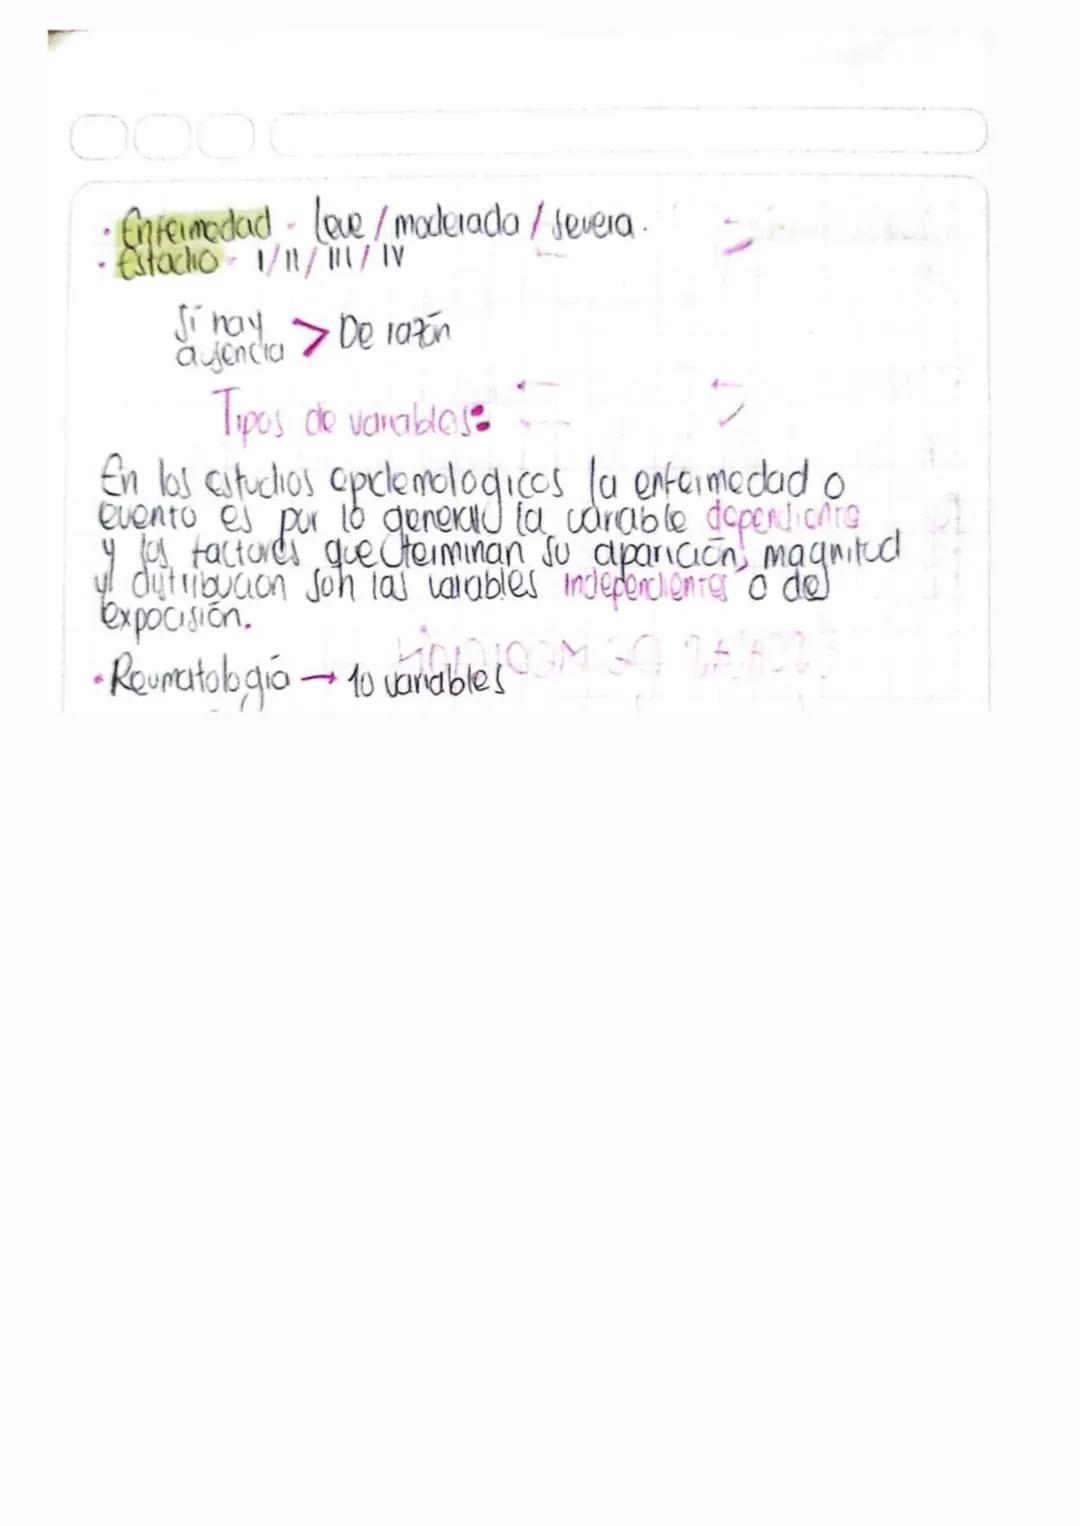 · Enfermedad - leve / moderada / severa.
· Estadio - I/II/III/IV
Sí hay
ausencia > De razón
Tipos de variables:
En los estudios epidemologicos la enfermedad o
evento es por lo general la variable dependiente
y los factores que determinan su aparición, magnitud
y distribucion son las variables independientes o de
expocisión.
· Reumatología → 10 variables